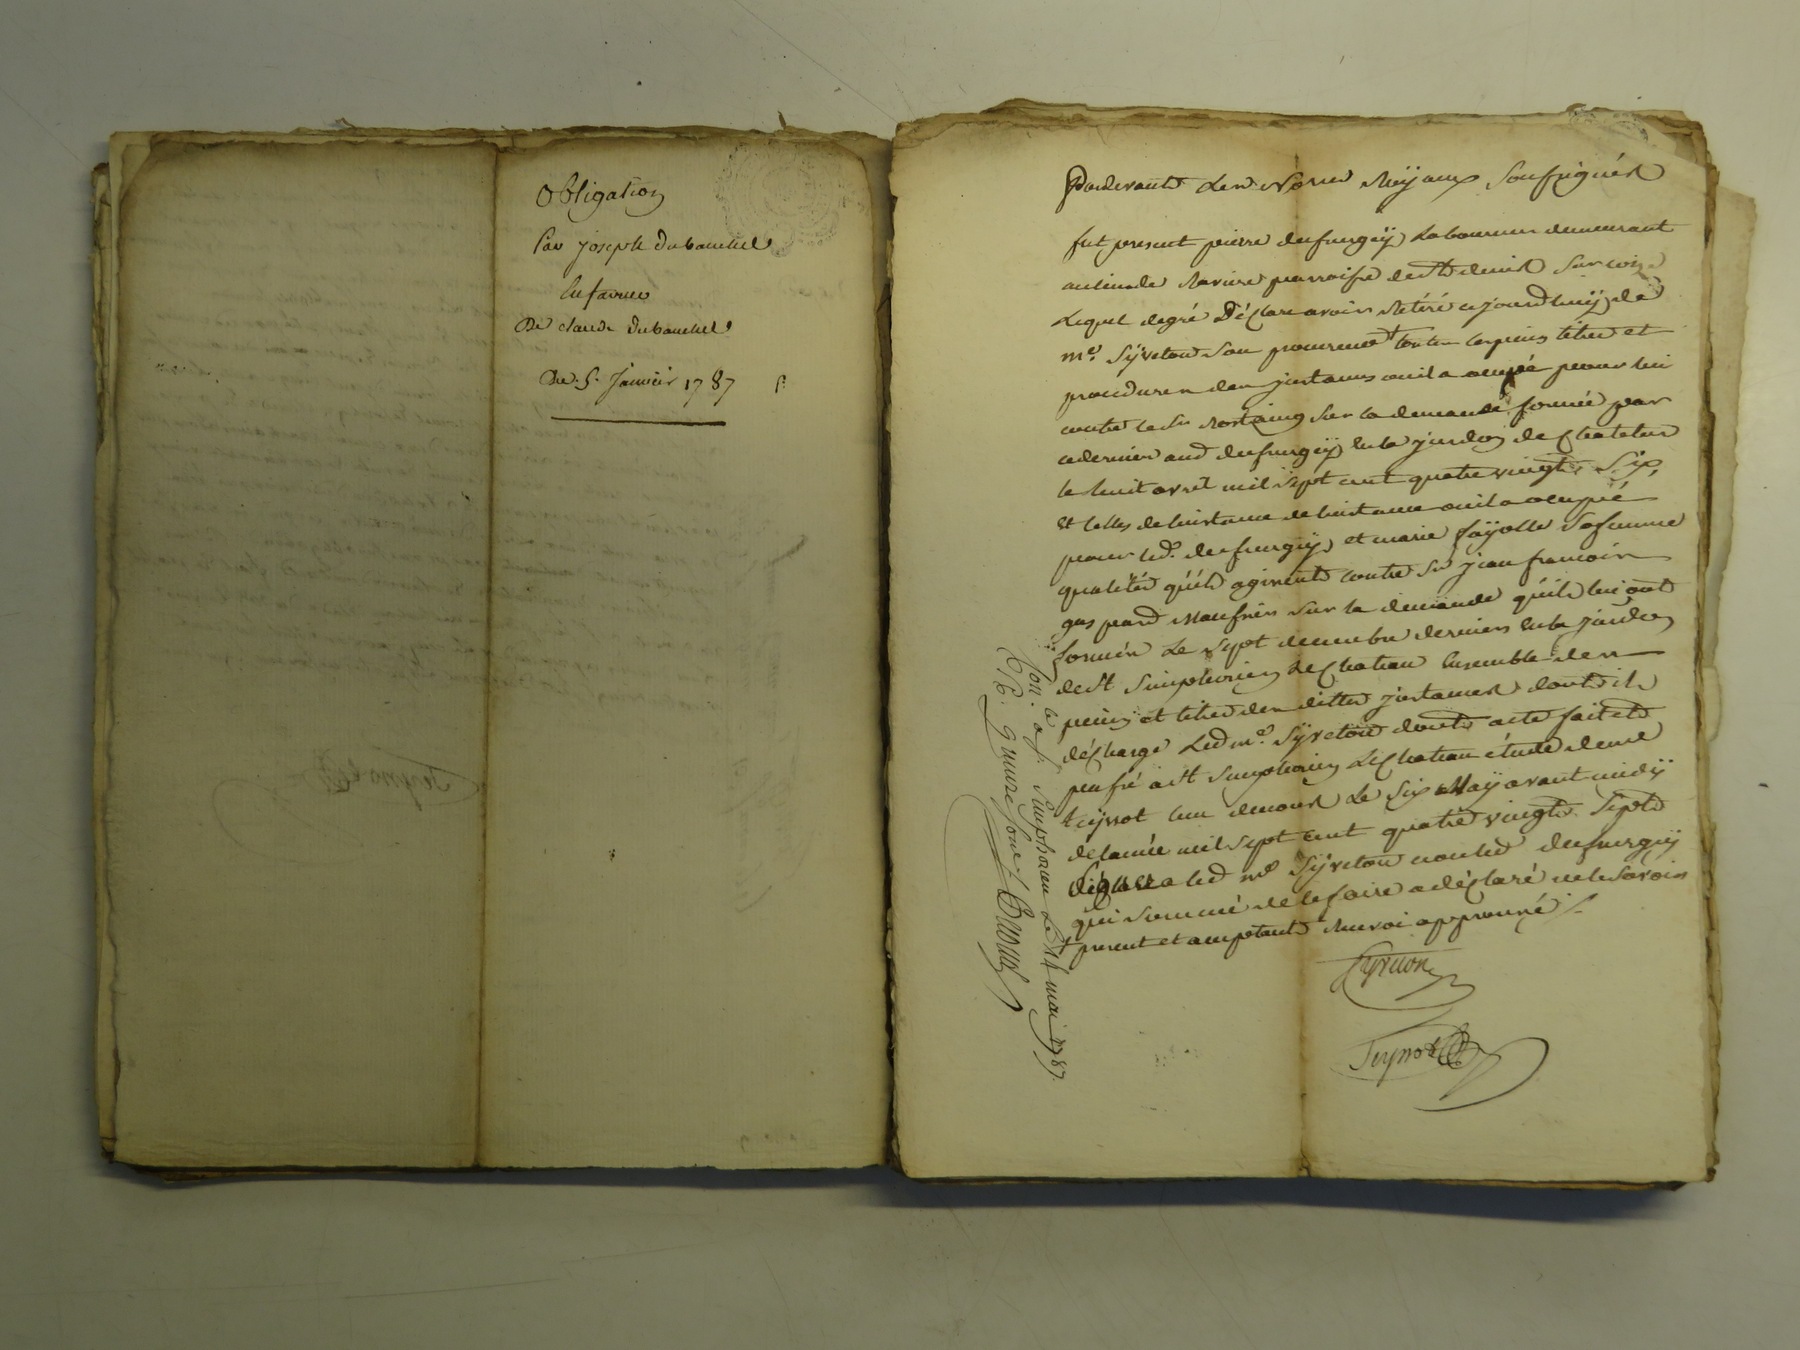 Obligation
Par joseph dubanchel
En faveur
De claude dubanchel
Du 5. Janvier 1787
Pardevant Les Nores Royaux Soussignés
fut present pierre dufurgey Laboureur demeurant
au lieu de Raviere parroisse de St denis sur coize
Lequel degré Déclare avoir Retiré cejourd'huÿ de
me. Sÿveton son procureur toutes les pieces titres et
procedures des jnstances ou il a ocupé pour lui
contre le Sr sur la demande formée par
ce dernier aud dufurgeÿ en la jurdon de Chatelus
le huit avril mil sept cent quatre vingt six,
et celles de linstance de linstance ou il a ocupé
pour led. dufurgeÿ et marie faÿolle sa femme
qualités qu'ils agissent contre Sr jean francois
gaspard Maufrin sur la demande qu'ils lui ont
formée Le sept decembre dernier en la jurdon
de St Simphorien Le Chateau Ensemble des
pieces et titres des dittes jnstances dont il
décharge Led me. Sÿveton dont acte fait et
passé a St Simphorien Le Chateau étude de me
teyssot l'un de nous Le Six May avant midÿ
de l'année mil sept cent quatre vingt sept
signera led me Sÿveton non led dufurgeÿ
qui sommé de le faire a déclaré ne le savoir
present et acceptant Renvoi approuvé
Syveton
Teyssot
Con. a St. Simphorien Le 14 mai 1787.
R. quinze sous